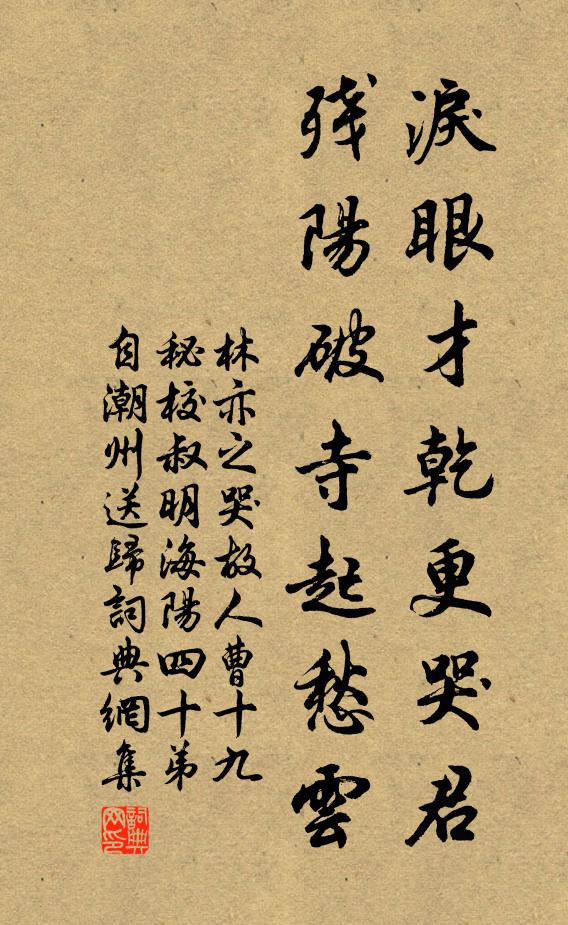 淚眼才乾更哭君
殘陽破寺起愁雲
林亦之哭故人曹十九
秘校叔明海陽四十弟
自潮州送歸詞典網集
詞典網印